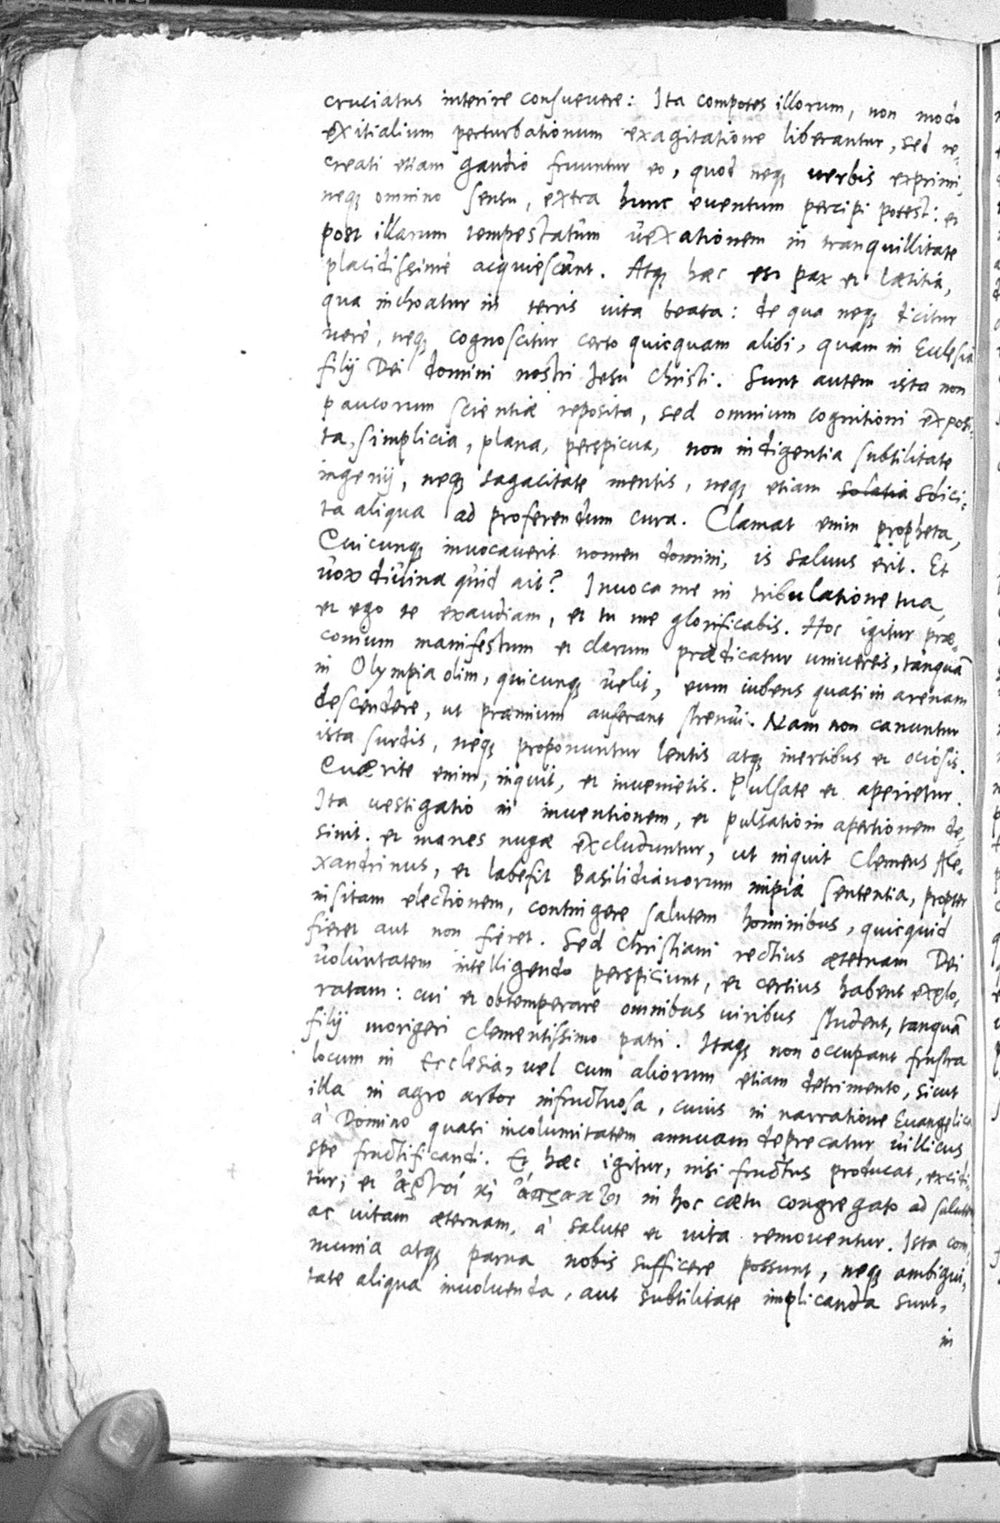 cruciatus interire consuevere: Ita compotes illorum, non modo
exitialium perturbationum exagitatione liberantur, sed re-
creati etiam gaudio fruuntur eo, quod neq; verbis exprimi,
neq; omnino sensu, extra hunc euentum percipi potest: et
post illarum tempestatum uexationem in tranquillitate
placidissime acquiescunt. Atq; haec est pax et laetitia,
qua inchoatur in terris uita beata: de qua neq; dicitur
uere, neq; cognoscitur certo quicquam alibi, quam in Ecclesia
filij Dei domini nostri Jesu Christi. Sunt autem ista non
paucorum scientiae reposita, sed omnium cognitioni exposi-
ta, simplicia, plana, perspicua, non indigentia subtilitate
ingenij, neq; sagacitate mentis, neq; etiam solatia solici-
ta aliqua ad proferendum cura. Clamat enim propheta,
Cuicunq; inuocauerit nomen domini, is saluus erit. Et
uox diuina quid ait? Inuoca me in tribulatione tua,
et ego te exaudiam, et tu me glorificabis. Hoc igitur prae-
conium manifestum et clarum praedicatur uniuersis, tanquã
in Olympia olim, quicunq; uelit, eum iubens quasi in arenam
descendere, ut praemium auferant strenui. Nam non canuntur
ista surdis, neq; proponuntur lentis atq; inertibus et ociosis.
Quaerite enim, inquit, et inuenietis. Pulsate et aperietur.
Ita uestigatio in inuentionem, et pulsatio in apertionem de-
sinit. et inanes nugae excluduntur, ut inquit Clemens Ale-
xandrinus, et labefit Basilidianorum impia sententia, propter
insitam electionem, contingere salutem hominibus, quicquid
fieret aut non fieret. Sed Christiani rectius aeternam Dei
uoluntatem intelligendo perspiciunt, et certius habent explo-
ratam: cui et obtemperare omnibus uiribus student, tanquã
filij morigeri clementissimo patri. Itaq; non occupant frustra
locum in Ecclesia, uel cum aliorum etiam detrimento, sicut
illa in agro arbor infructuosa, cuius in narratione Euangelica
à Domino quasi incolumitatem annuam deprecatur uillicus
spe fructificandi. Et haec igitur, nisi fructus producat, excidi-
tur, et ἀργοί κὶ ἄπρακτοι in hoc caetu congregato ad salutem
ac uitam aeternam, à salute et uita remouentur. Ista com-
munia atq; parua nobis sufficere possunt, neq; ambigui-
tate aliqua inuoluenda, aut subtilitate implicanda sunt,
in